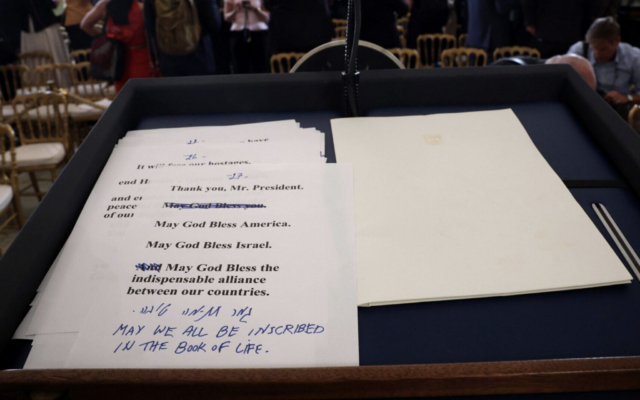 have
-26-
our hostages,
-27-
end H
Thank you, Mr. President.
and
peace May God Bless you.
of our
May God Bless America.
May God Bless Israel.
May God Bless the
indispensable alliance
between our countries.
גמר חתימה טובה.
MAY WE ALL BE INSCRIBED
IN THE BOOK OF LIFE.